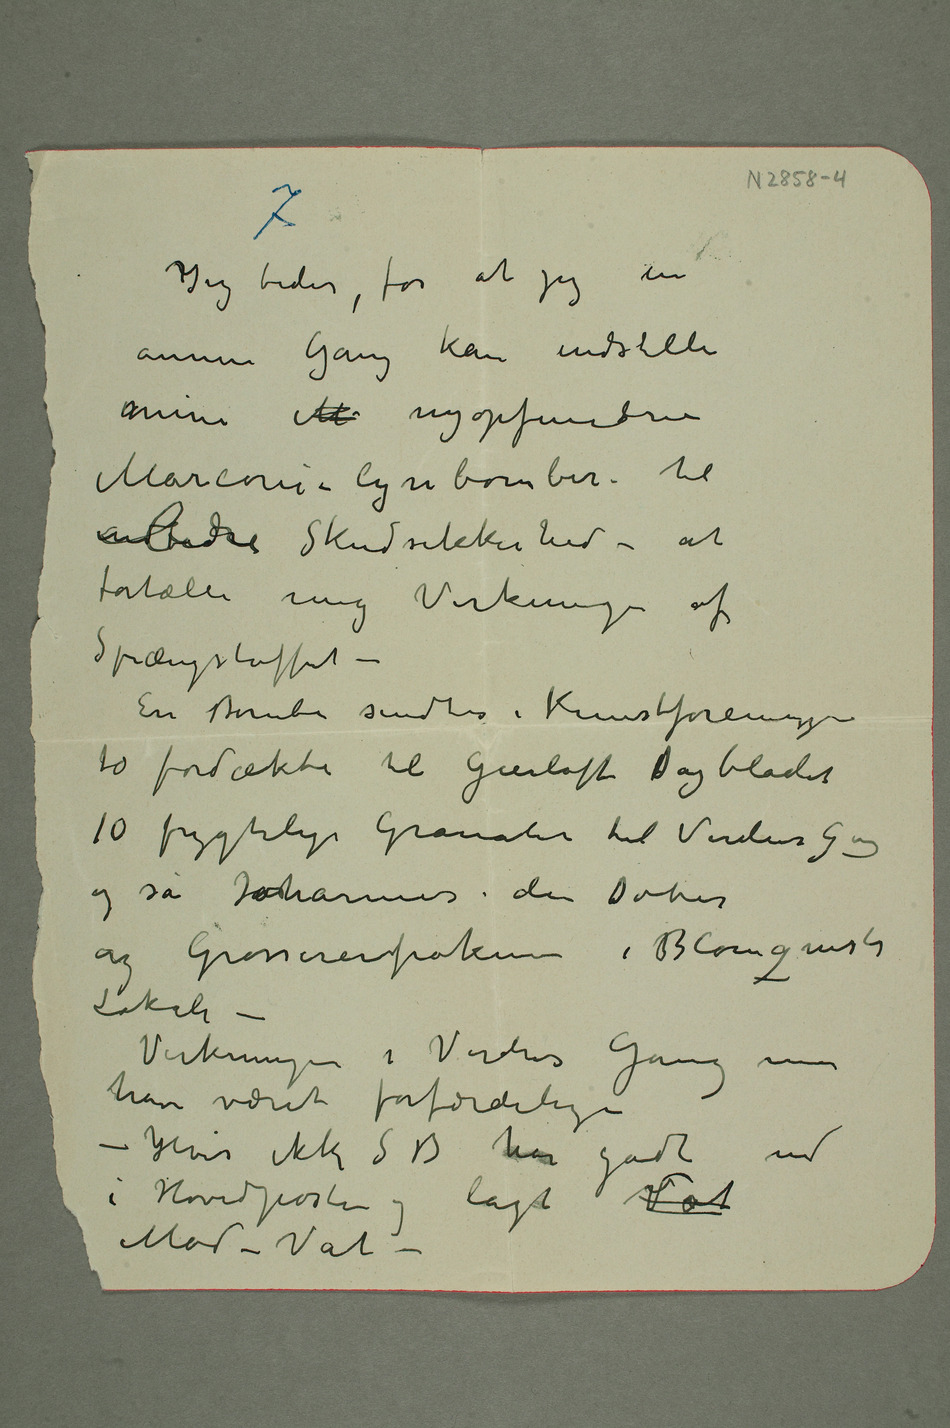 N 2858-4
7
Jeg beder, for at jeg en
annen Gang kan indstille
mine nyopfundne
Marconi-lynbomber – til
bedre Skudsikkerhed – at
fortælle mig Virkningen af
Sprængstoffet –
En Bombe sendtes i Kunstforeningen
to fordækte til Gierløffs Dagbladet
10 frygtelige Granater til Verdens Gang
og så Johannes den Døber
og Grossererfrøknen i Blomqvists
Lokale –
Virkningen i Verdens Gang må
have været forfærdelig
– Hvis ikke SB har gådt ned
i Hovedposten og lagt Vat
Mod-Vat –